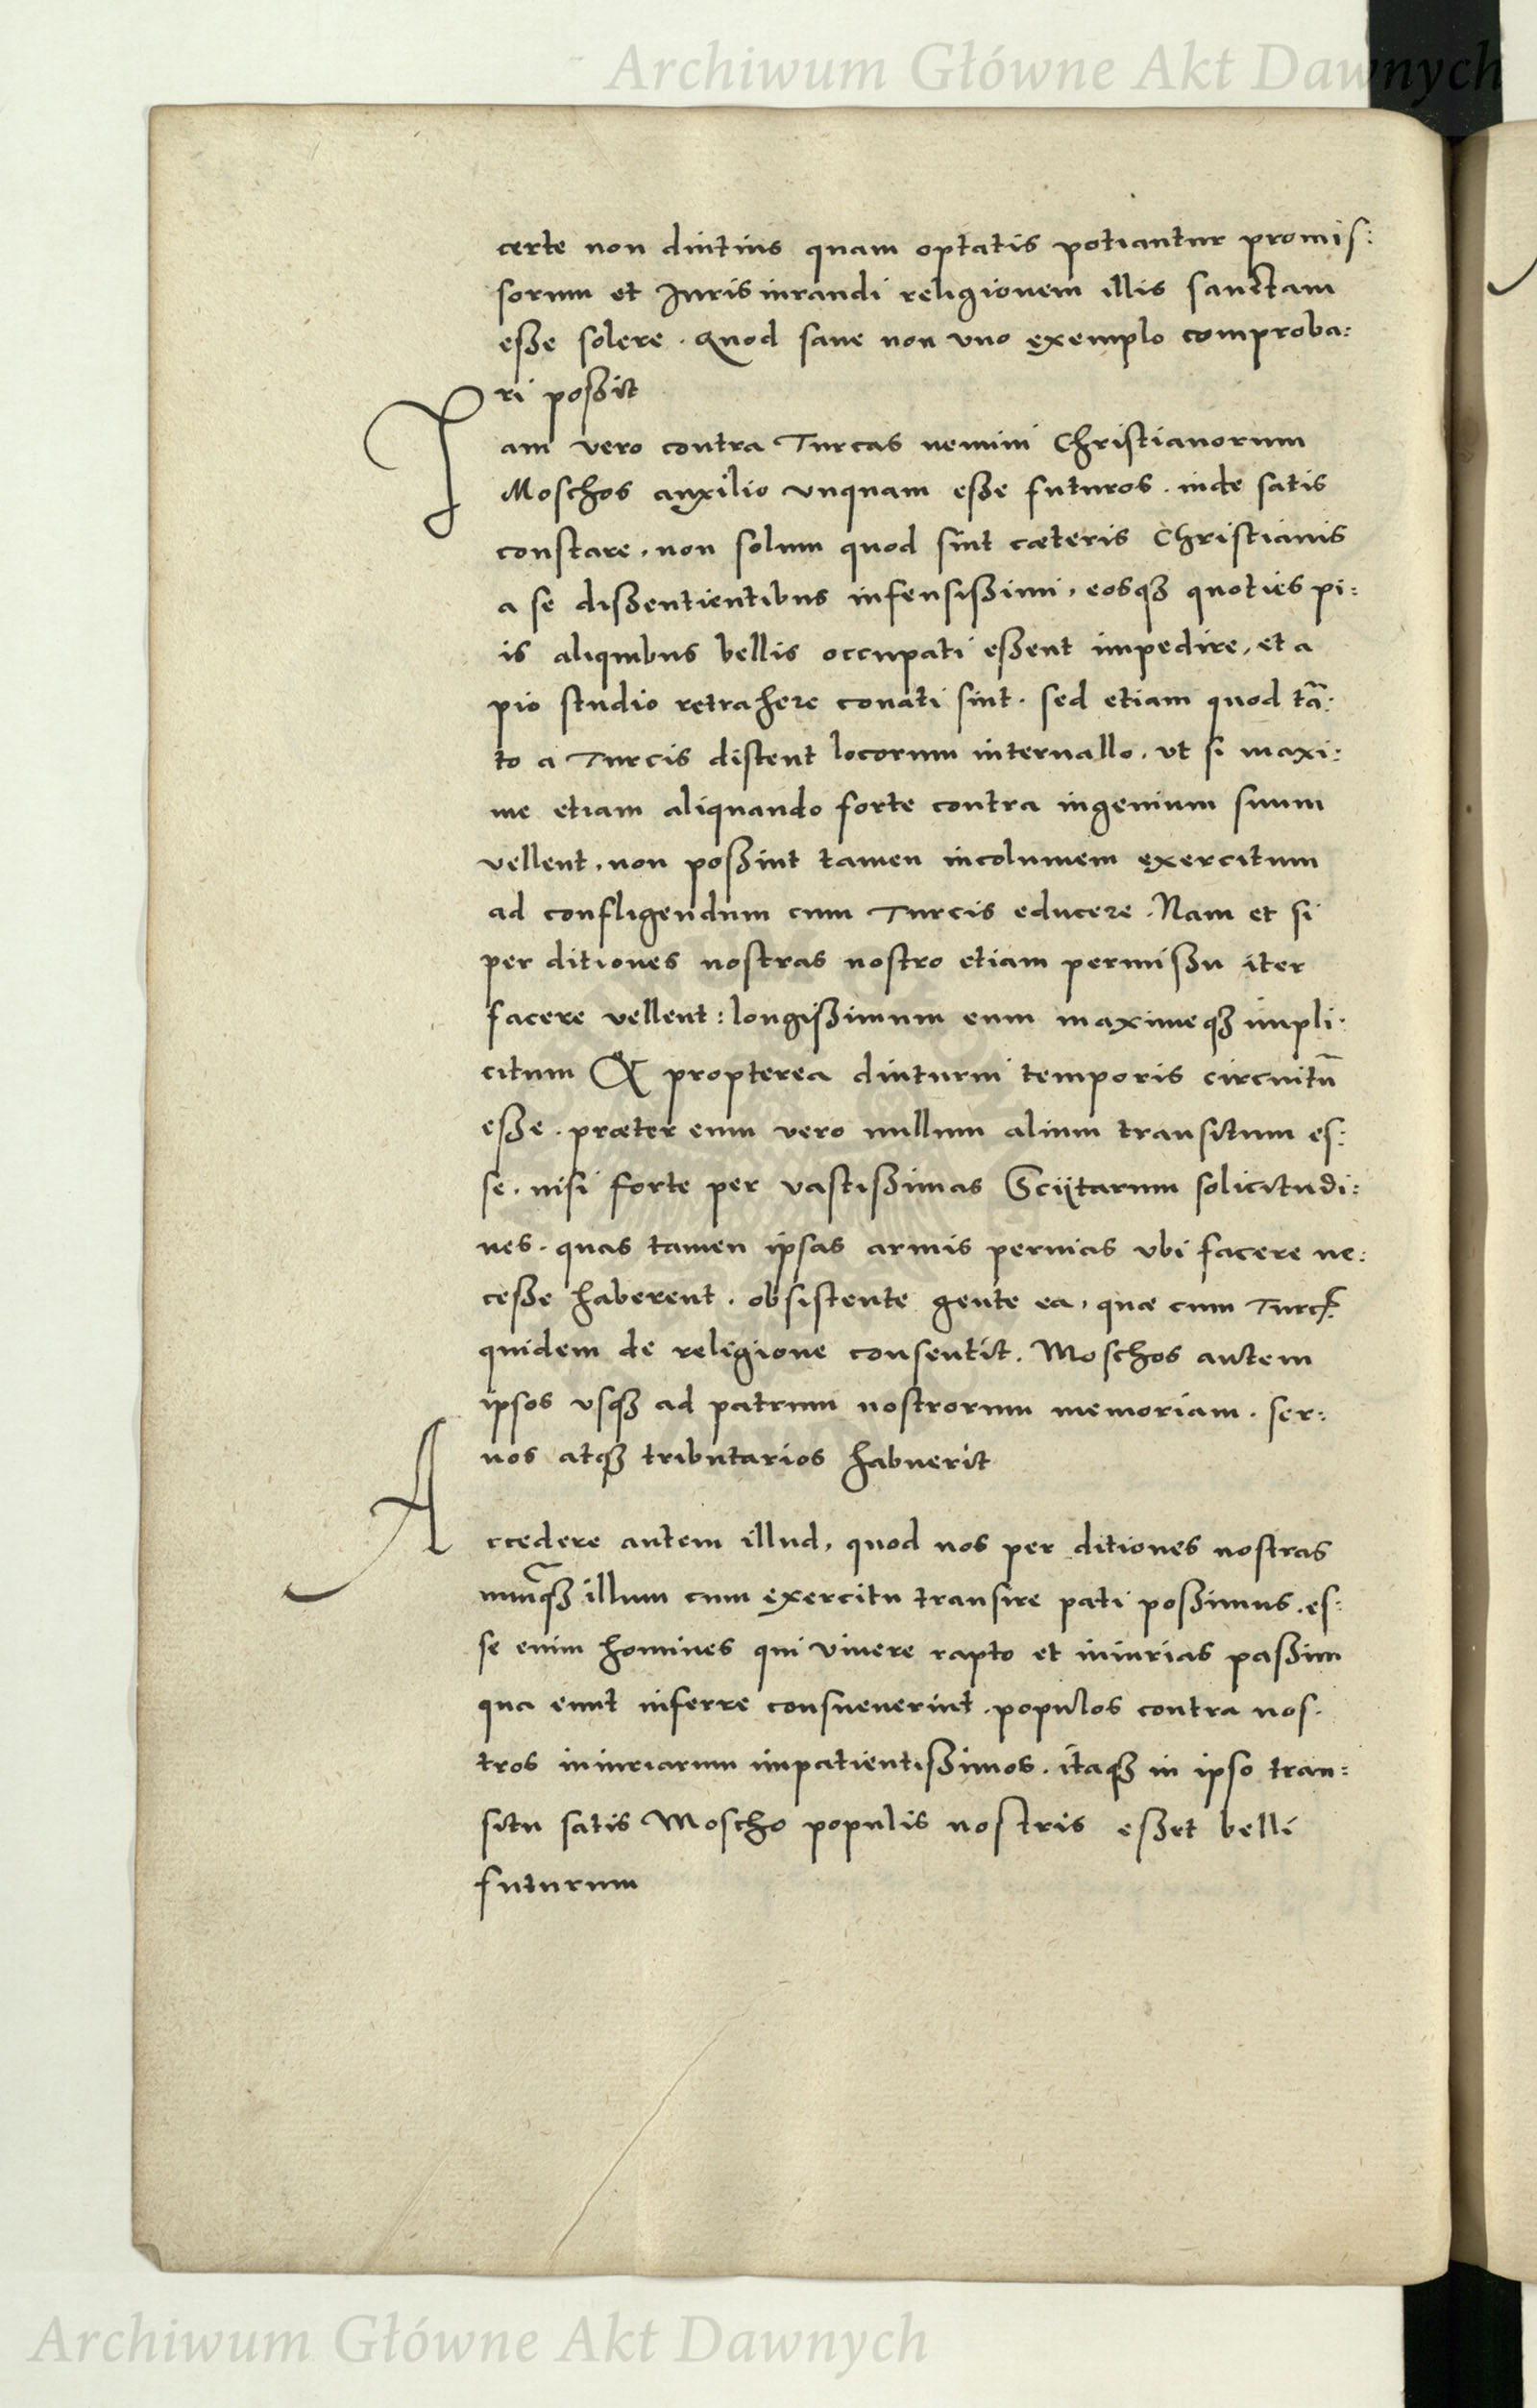 Archiwum Główne Akt Dawnych
certe non diutius quam optatis potiantur promis:
sorum et Jurisiurandi religionem illis sanctam
esse solere. Quod sane non uno exemplo comproba:
ri possit
Jam vero contra Turcas nemini Christianorum
Moschos auxilio unquam esse futuros. inde satis
constare, non solum quod sint cæteris Christianis
a se dissentientibus infensissimi, eosqȝ quoties pi:
is aliquibus bellis occupati essent impedire, et a
pio studio retrahere conati sint. sed etiam quod tã:
to a Turcis distent locorum interuallo, vt si maxi:
me etiam aliquando forte contra ingenium suum
vellent, non possint tamen incolumem exercitum
ad confligendum cum Turcis educere. Nam et si
per ditiones nostras nostro etiam permissu iter
facere vellent: longissimum eum maximeqȝ impli:
citum & propterea diuturni temporis circuitũ
esse. præter eum vero nullum alium transitum es:
se. nisi forte per vastissimas Scijtarum solicitudi:
nes. quas tamen ipsas armis peruias vbi facere ne:
cesse haberent. obsistente gente ea, quæ cum Turcꝭ
quidem de religione consentit. Moschos autem
ipsos vsqȝ ad patrum nostrorum memoriam. ser:
uos atqȝ tributarios habuerit
Accedere autem illud, quod nos per ditiones nostras
nunq̃ȝ illum cum exercitu transire pati possimus. es:
se enim homines qui viuere rapto et iniurias passim
qua eunt inferre consueuerint. populos contra nos:
tros iniuriarum impatientissimos. itaqȝ in ipso tran:
situ satis Moscho populis nostris esset belli
futurum
Archiwum Główne Akt Dawnych